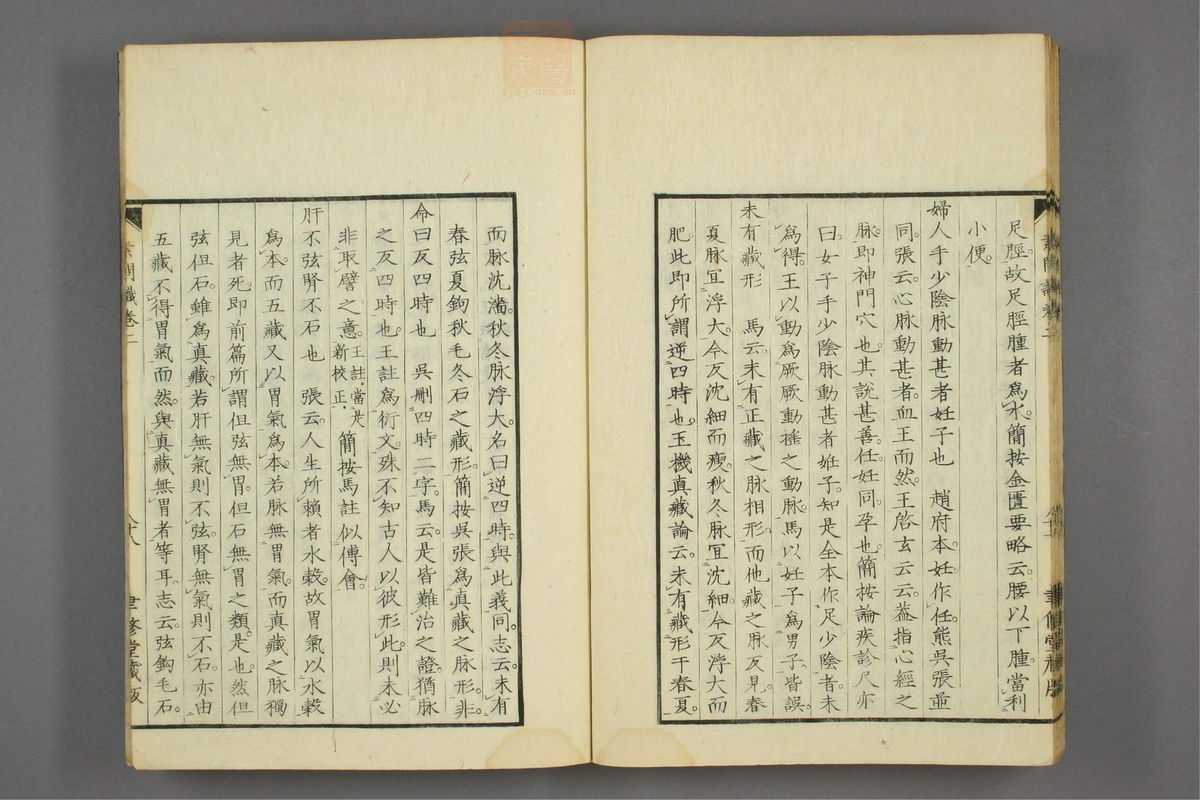 足脛故足脛腫者爲水簡按金匱要略云腰以下腫當利
小便
婦人手少陰脈動甚者妊子也　趙府本妊作任熊吳張並
同張云心脈動甚者血王而然王啓玄云云葢指心經之
脈即神門穴也其說甚善任妊同孕也簡按論疾診尺亦
曰女子手少陰脈動甚者妊子知是全本作足少陰者未
爲得王以動爲厥厥動搖之動脈馬以妊子爲男子皆誤
未有藏形　馬云未有正藏之脈相形而他藏之脈反見春
夏脈宜浮大今反沈細而瘦秋冬脈宜沈細今反浮大而
肥此即所謂逆四時也玉機真藏論云未有藏形于春夏
而脈沈濇秋冬脈浮大名曰逆四時與此義同志云未有
春弦夏鉤秋毛冬石之藏形簡按吳張爲真藏之脈形非
命曰反四時也　吳刪四時二字馬云是皆難治之證猶脈
之反四時也王註爲衍文殊不知古人以彼形此則未必
非取譬之意王註當是新校正簡按馬註似傅會
肝不弦腎不石也　張云人生所賴者水穀故胃氣以水穀
爲本而五藏又以胃氣爲本若脈無胃氣而真藏之脈獨
見者死即前篇所謂但弦無胃但石無胃之類是也然但
弦但石雖爲真藏若肝無氣則不弦腎無氣則不石亦由
五藏不得胃氣而然與真藏無胃者等耳志云弦鉤毛石
素問識卷二
八十八
聿修堂藏版